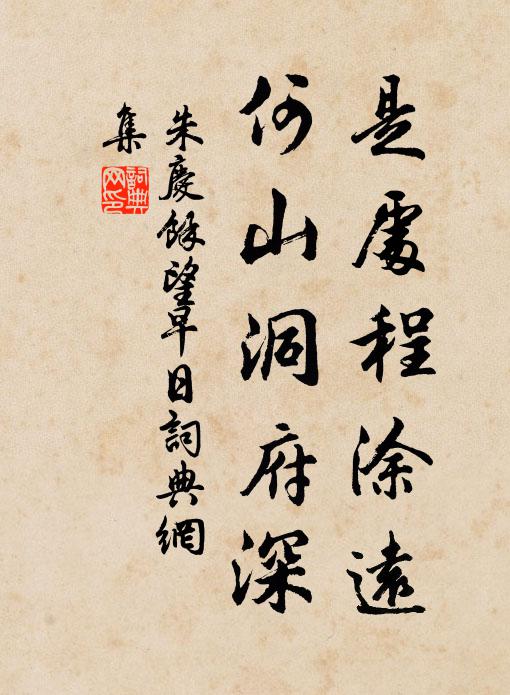 是處程涂遠
何山洞府深
朱慶餘望早日詞典網
集
詞典
网印